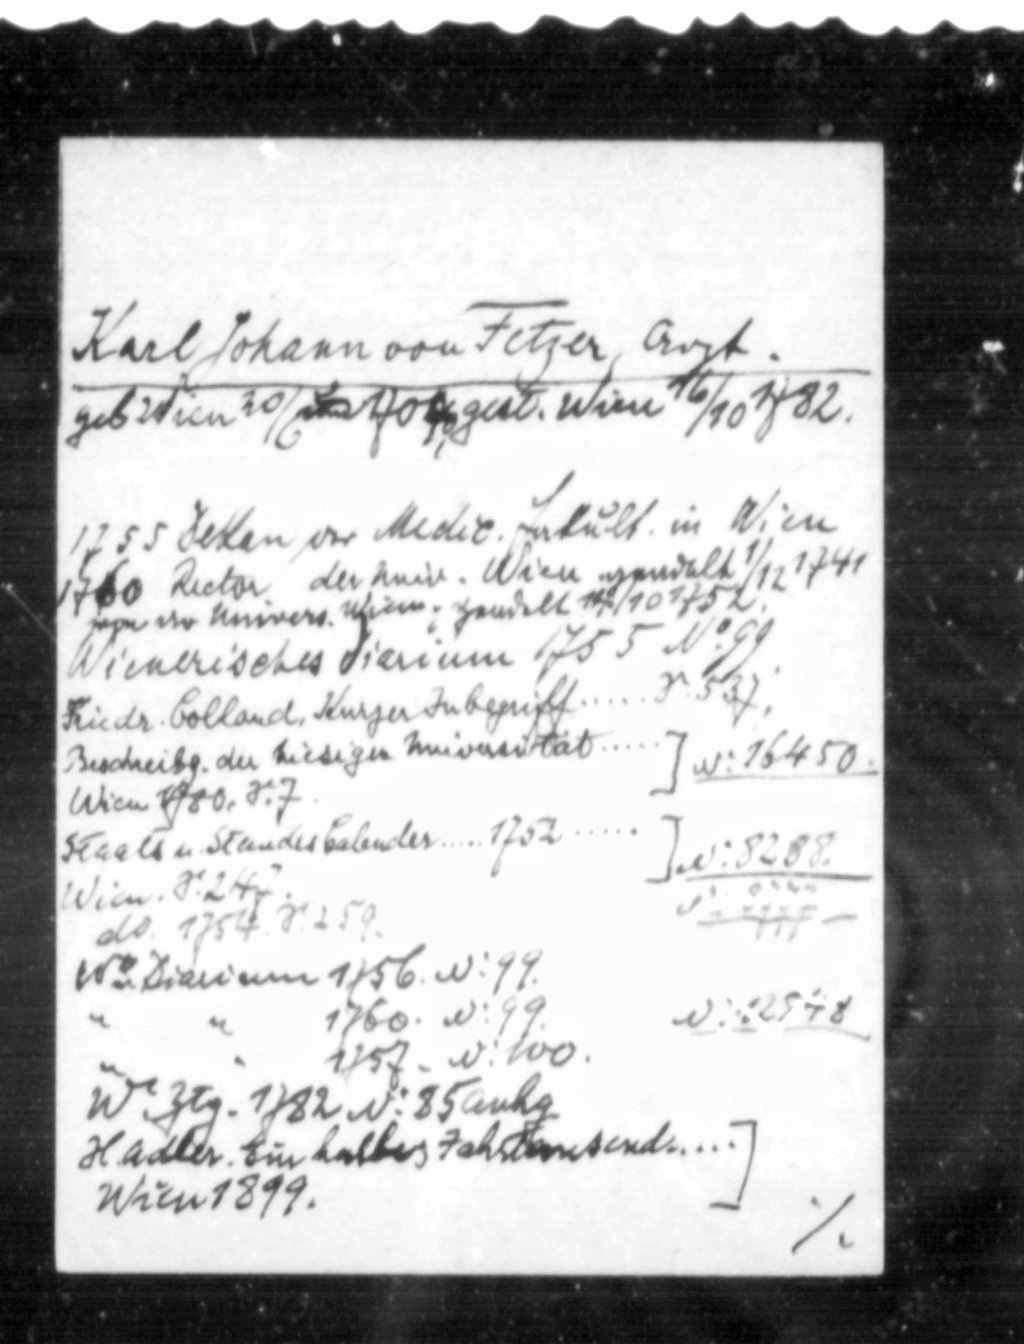 Karl Johann von Fetzer, Arzt.
geb Wien 30/6 gest. Wien 16/10 1782.
1755 Dekan der Medic. Fakult. in Wien
1760 Rector der Univ. Wien geadelt 1/12 1741
der Univers. Wien; geadelt 14/10 1752.
Wienerisches Diarium 1755 No: 99.
Friedr. Colland, Kurzer Inbegriff ..... S. 537.
Beschreibg. der hiesigen Universität ..... ] N: 16450.
Wien 1780. S. 7.
Staats u. Standes Calender ..... 1752 ...... ] N: 8288.
Wien. S. 247.
do. 1754. S. 259.
Wr. Diarium 1756. N: 99.
" " 1760. N: 99. N: 12548
" " 1757. N: 100.
Wr. Ztg. 1782 N: 85 anhg
H. Adler. Ein halbes Jahrtausend ..... ]
Wien 1899.
./.